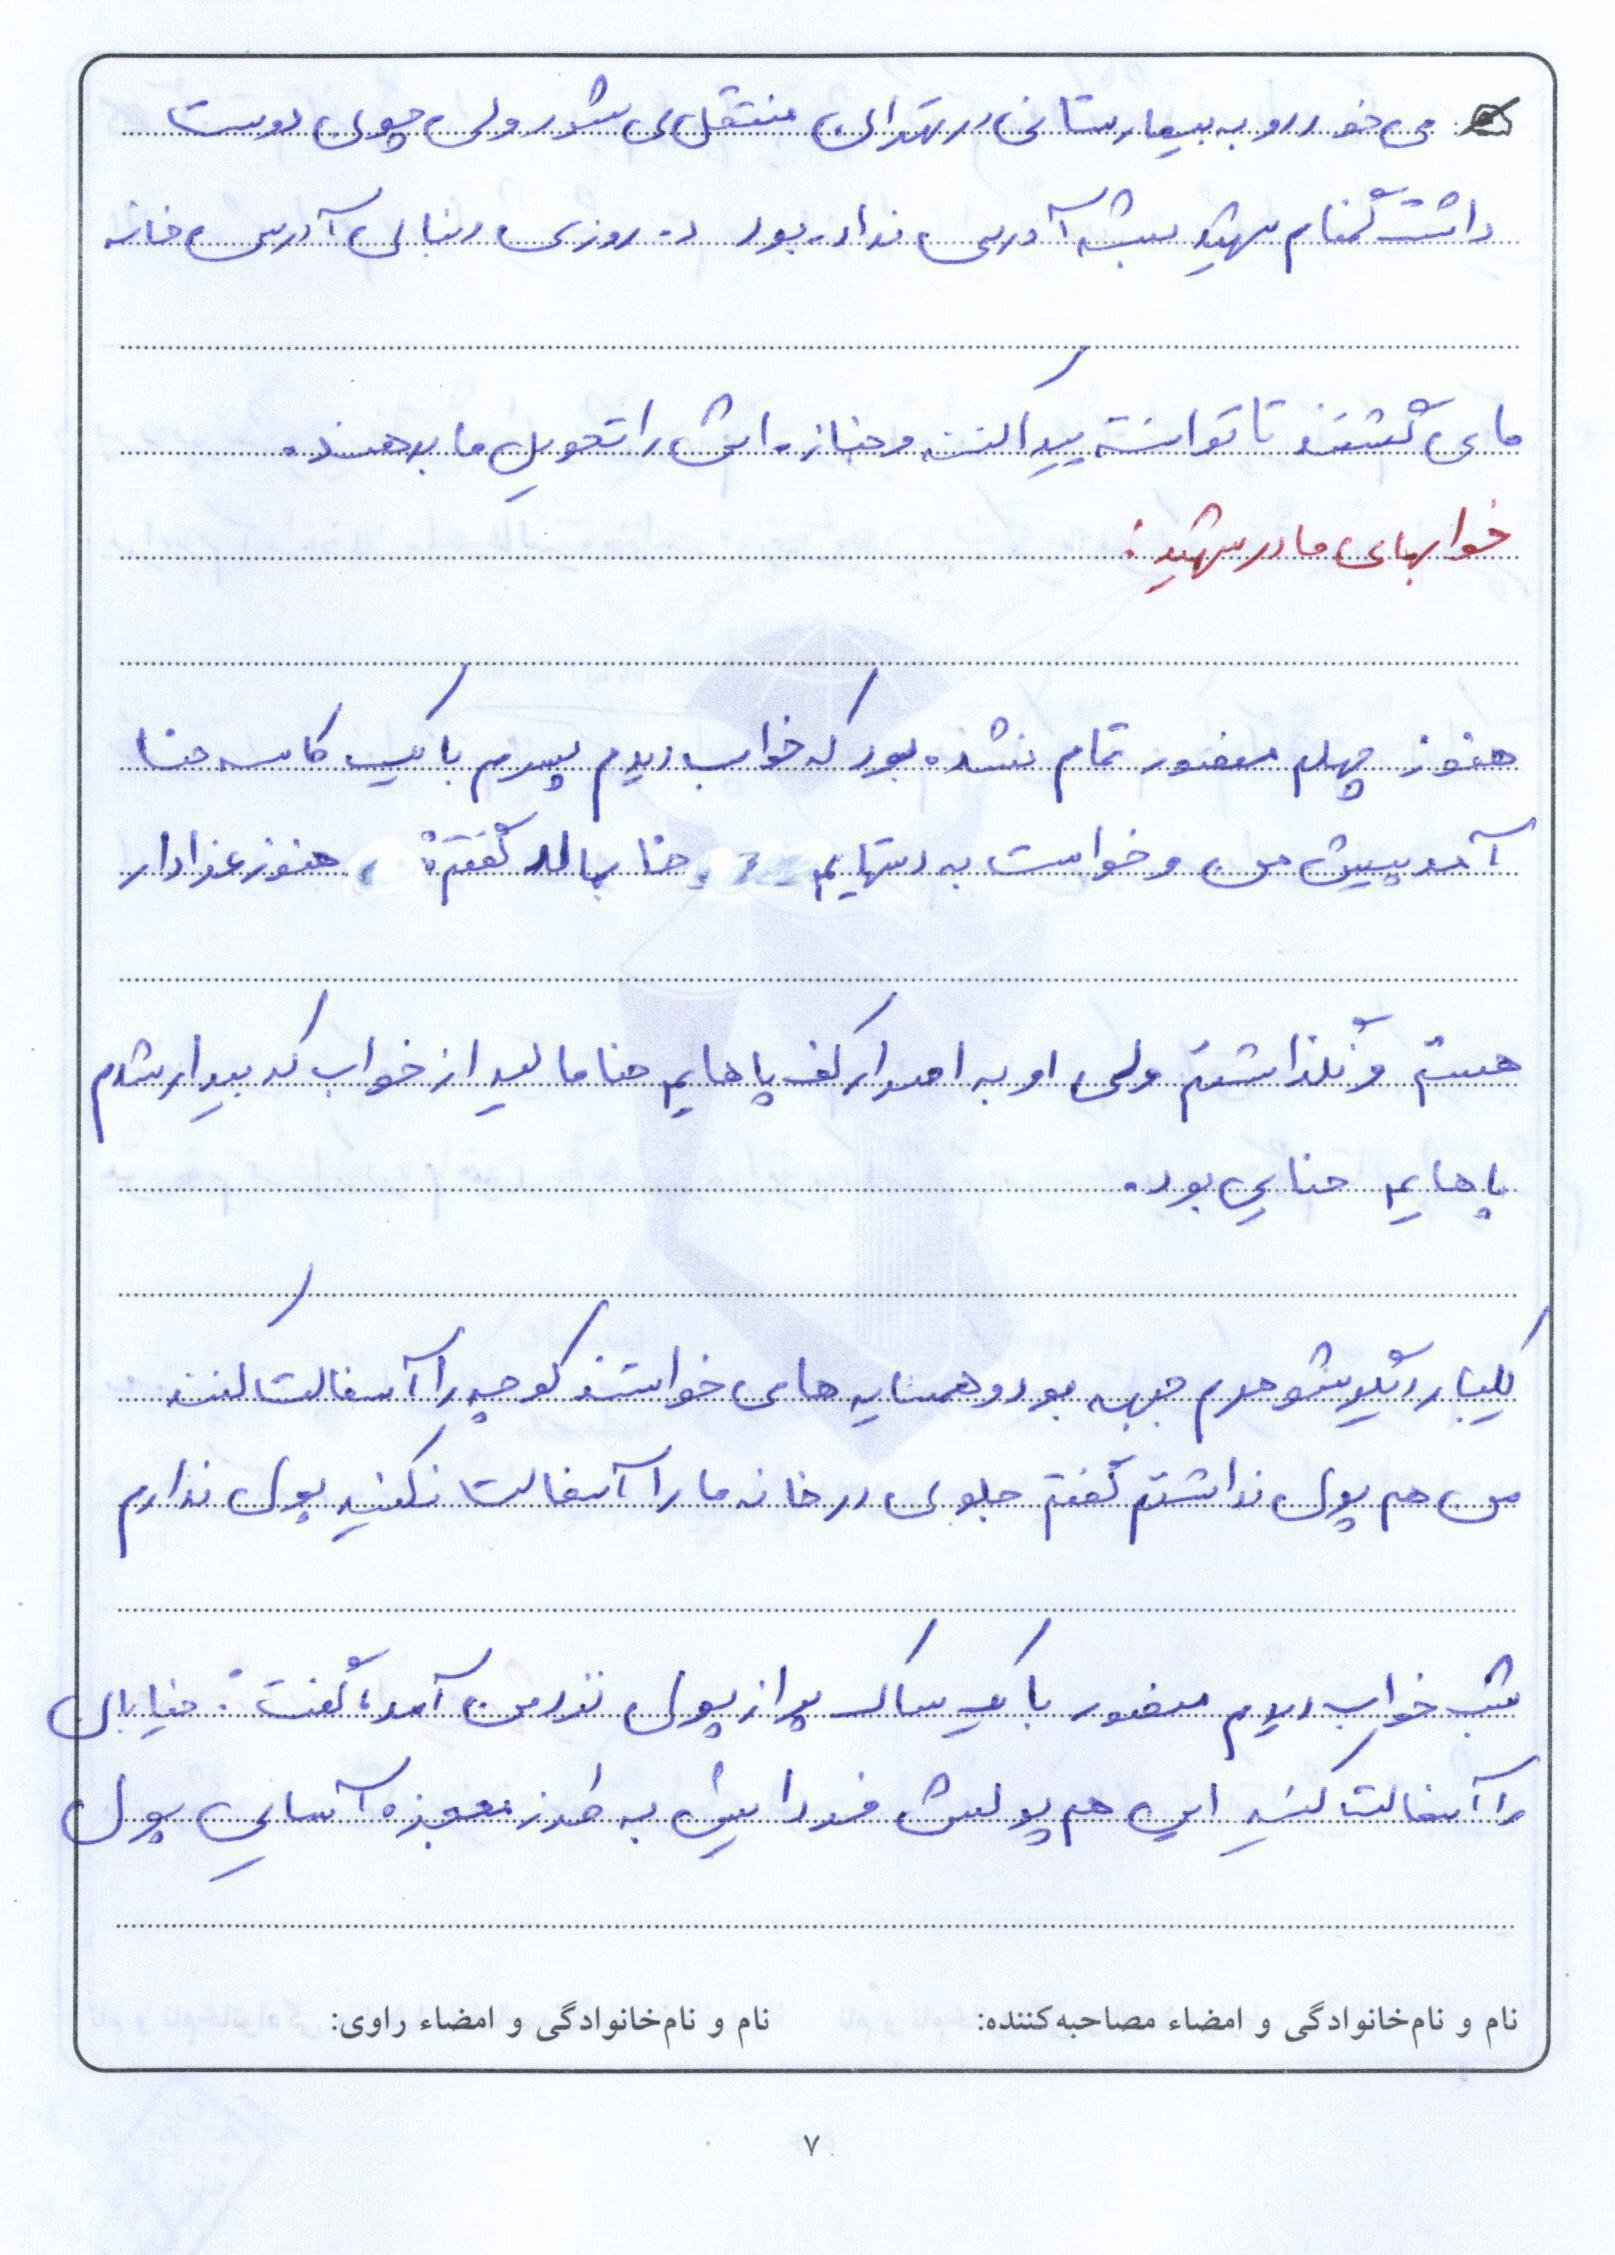 می خورد و به بیمارستانی در تهران منتقل می شود ولی چون دوست
داشت گمنام شهید بشه آدرسی نداده بود ده روزی دنبال آدرس خانه
ما می گشتند تا توانسته پیدا کنند و جنازه اش را تحویل ما بدهند.
خوابهای مادر شهید:
هنوز چهلم منصور تمام نشده بود که خواب دیدم پسرم با یک کاسه حنا
آمد پیش من و خواست به دستهایم حنا بمالد گفتم: هنوز عزادار
هستم و نگذاشتم ولی او به اصرار کف پاهایم حنا مالید از خواب که بیدار شدم
پاهایم حنایی بود.
یکبار دیگر شوهرم جبهه بود و همسایه ها می خواستند کوچه را آسفالت کنند
من هم پول نداشتم گفتم جلوی در خانه ما را آسفالت نکنید پول ندارم
شب خواب دیدم منصور با یک ساک پر از پول نزد من آمد، گفت: خیابان
را آسفالت کنید این هم پولش فردایش به طرز معجزه آسایی پول
نام و نام‌خانوادگی و امضاء مصاحبه‌کننده: نام و نام‌خانوادگی و امضاء راوی:
۷